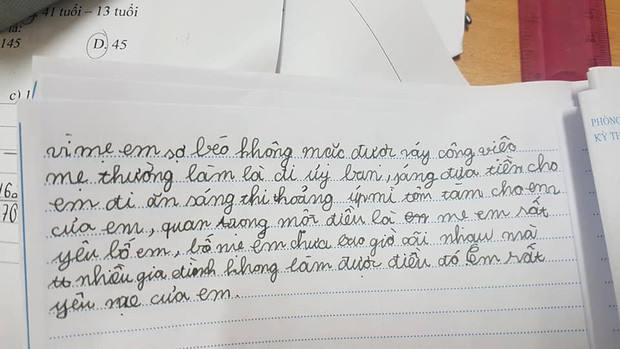 41 tuổi – 13 tuổi
145
D. 45
c) 1
PHÒNG
KỲ TH
160
70
vì mẹ em sợ béo không mặc được váy công việc
mẹ thường làm là đi ủy ban, sáng đưa tiền cho
em đi ăn sáng thi thoảng úp mì tôm tằm cho em
của em, quan tương mỗi điều là em mẹ em rất
yêu bố em, bố mẹ em chưa bao giờ cãi nhau mà
nhiều gia đình không làm được điều đó Em rất
yêu mẹ của em.